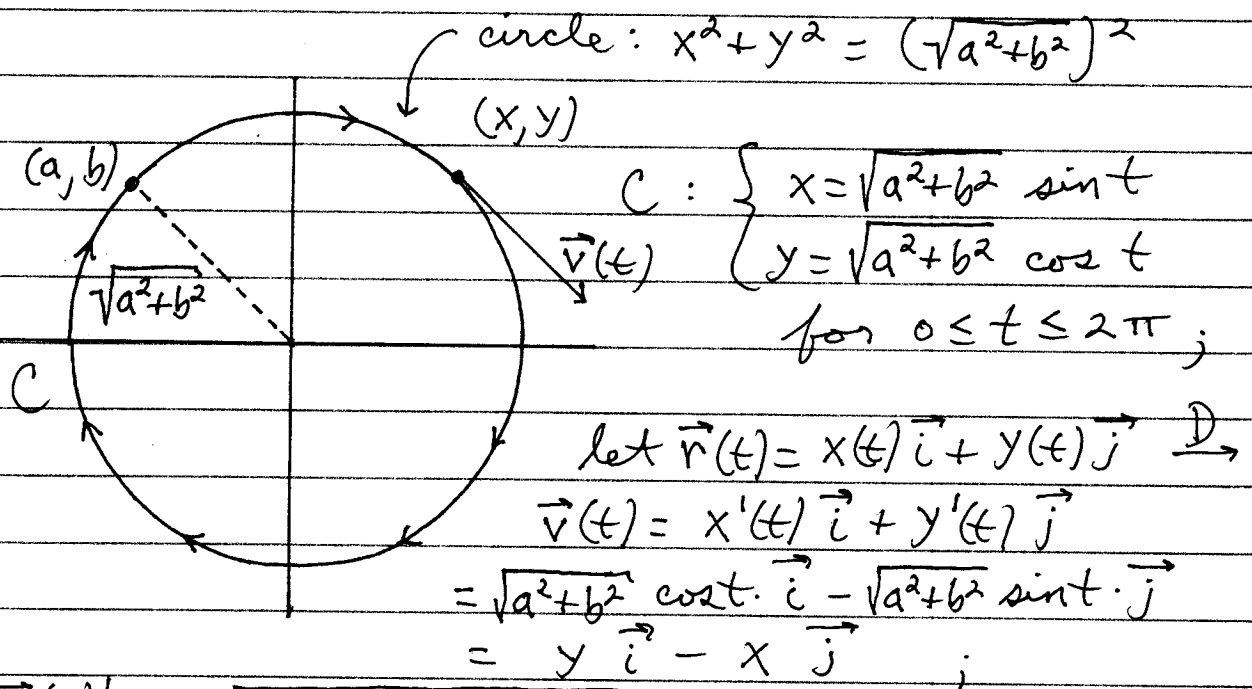 circle: x² + y² = (√a²+b²)²
(x, y)
(a, b)
C : { x = √a²+b² sin t
y = √a²+b² cos t
v⃗(t)
√a²+b²
for 0 ≤ t ≤ 2π ;
C
let r⃗(t) = x(t) i⃗ + y(t) j⃗ D→
v⃗(t) = x'(t) i⃗ + y'(t) j⃗
= √a²+b² cos t · i⃗ - √a²+b² sin t · j⃗
= y i⃗ - x j⃗ ;